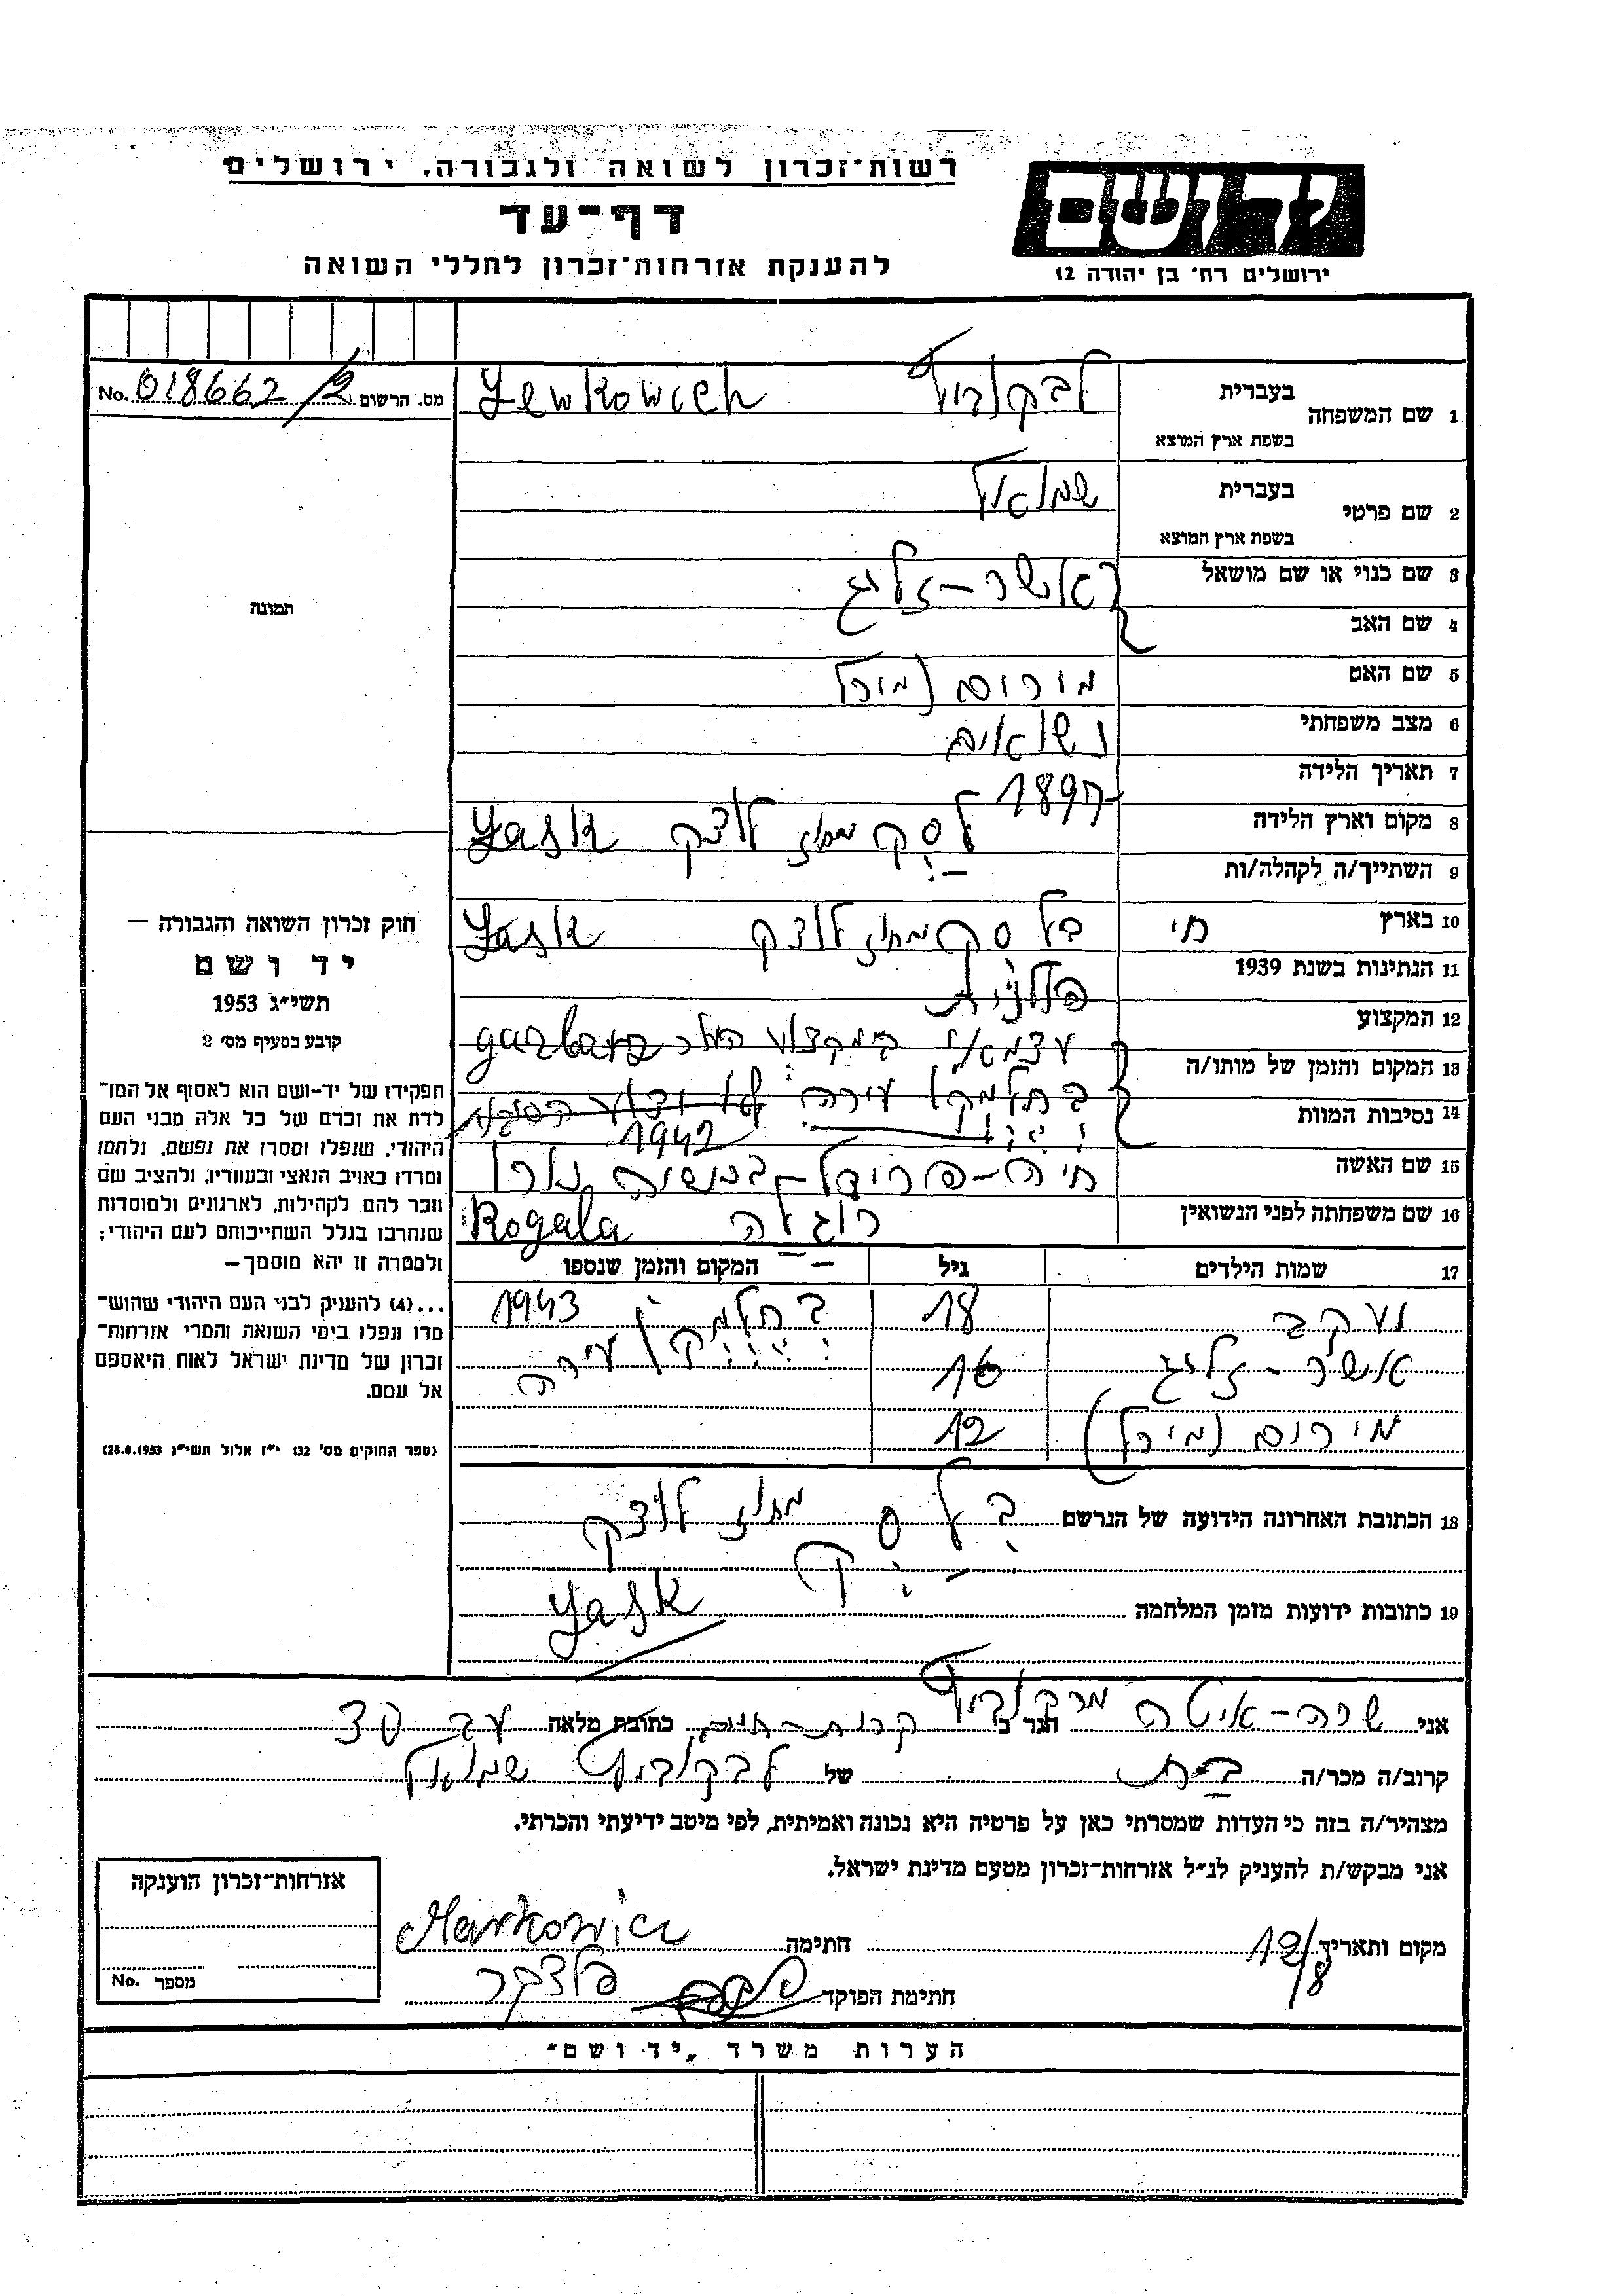 רשות־זכרון לשואה ולגבורה, ירושלים
דף־עד
להענקת אזרחות־זכרון לחללי השואה
יד ושם
ירושלים רח׳ בן יהודה 12
No. 018662/2 מס. הרשום
1 שם המשפחה בעברית לבקוביץ Lewkowich
בשפת ארץ המוצא
2 שם פרטי בעברית שמואל
בשפת ארץ המוצא
3 שם כנוי או שם מושאל
אשר-זליג
4 שם האב
5 שם האם מירים (מירל
6 מצב משפחתי נשואים
7 תאריך הלידה 1897
8 מקום וארץ הלידה לסק מחוז לודז Lask
9 השתייך/ה לקהלה/ות
10 בארץ חי בלסק מחוז לודז Lask
11 הנתינות בשנת 1939 פולנית
12 המקצוע
עצמאי במקצוע garbarz
13 המקום והזמן של מותו/ה
14 נסיבות המוות
בחלמנו עירה לא ידוע
1942
15 שם האשה חיה-פריידל
16 שם משפחתה לפני הנשואין רוגלה Rogala
17 שמות הילדים גיל המקום והזמן שנספו
יעקב 18 1943
אשר-זליג 16 עירה
מירים (מירל) 12
18 הכתובת האחרונה הידועה של הנרשם בלסק מחוז לודז
19 כתובות ידועות מזמן המלחמה Lask
תמונה
חוק זכרון השואה והגבורה —
יד ושם
תשי״ג 1953
קובע בסעיף מס׳ 2
תפקידו של יד-ושם הוא לאסוף אל המו־
לדת את זכרם של כל אלה מבני העם
היהודי, שנפלו ומסרו את נפשם, נלחמו
ומרדו באויב הנאצי ובעוזריו, ולהציב שם
וזכר להם לקהילות, לארגונים ולמוסדות
שנחרבו בגלל השתייכותם לעם היהודי;
ולמטרה זו יהא מוסמך—
...(4) להעניק לבני העם היהודי שהוש־
מדו ונפלו בימי השואה והמרי אזרחות־
זכרון של מדינת ישראל לאות היאספם
אל עמם.
(ספר החוקים מס׳ 132 י״ז אלול תשי״ג 28.8.1953)
אני שרה-איטה מרקוביץ הגר ב קרית-חיים כתובת מלאה
קרוב/ה מכר/ה בת של לבקוביץ שמואל
מצהיר/ה בזה כי העדות שמסרתי כאן על פרטיה היא נכונה ואמיתית, לפי מיטב ידיעתי והכרתי.
אני מבקש/ת להעניק לנ״ל אזרחות־זכרון מטעם מדינת ישראל.
מקום ותאריך 12/8 חתימה Markowicz
חתימת הפוקד
אזרחות־זכרון הוענקה
מספר No.
הערות משרד „יד ושם״